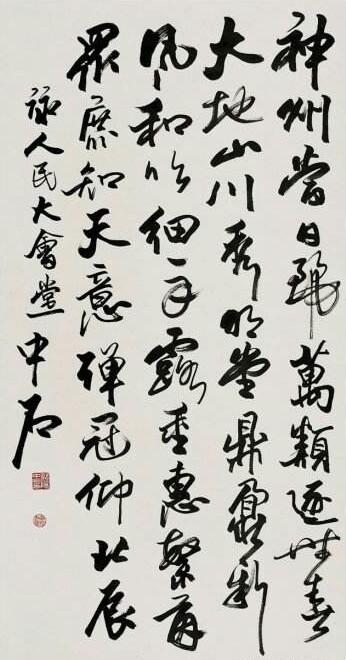 神州當日麗萬類逐時春
大地山川秀明堂鼎鼐新
風和吹細露重惠繁
眾庶知天意彈冠仰北辰
詠人民大會堂 中石